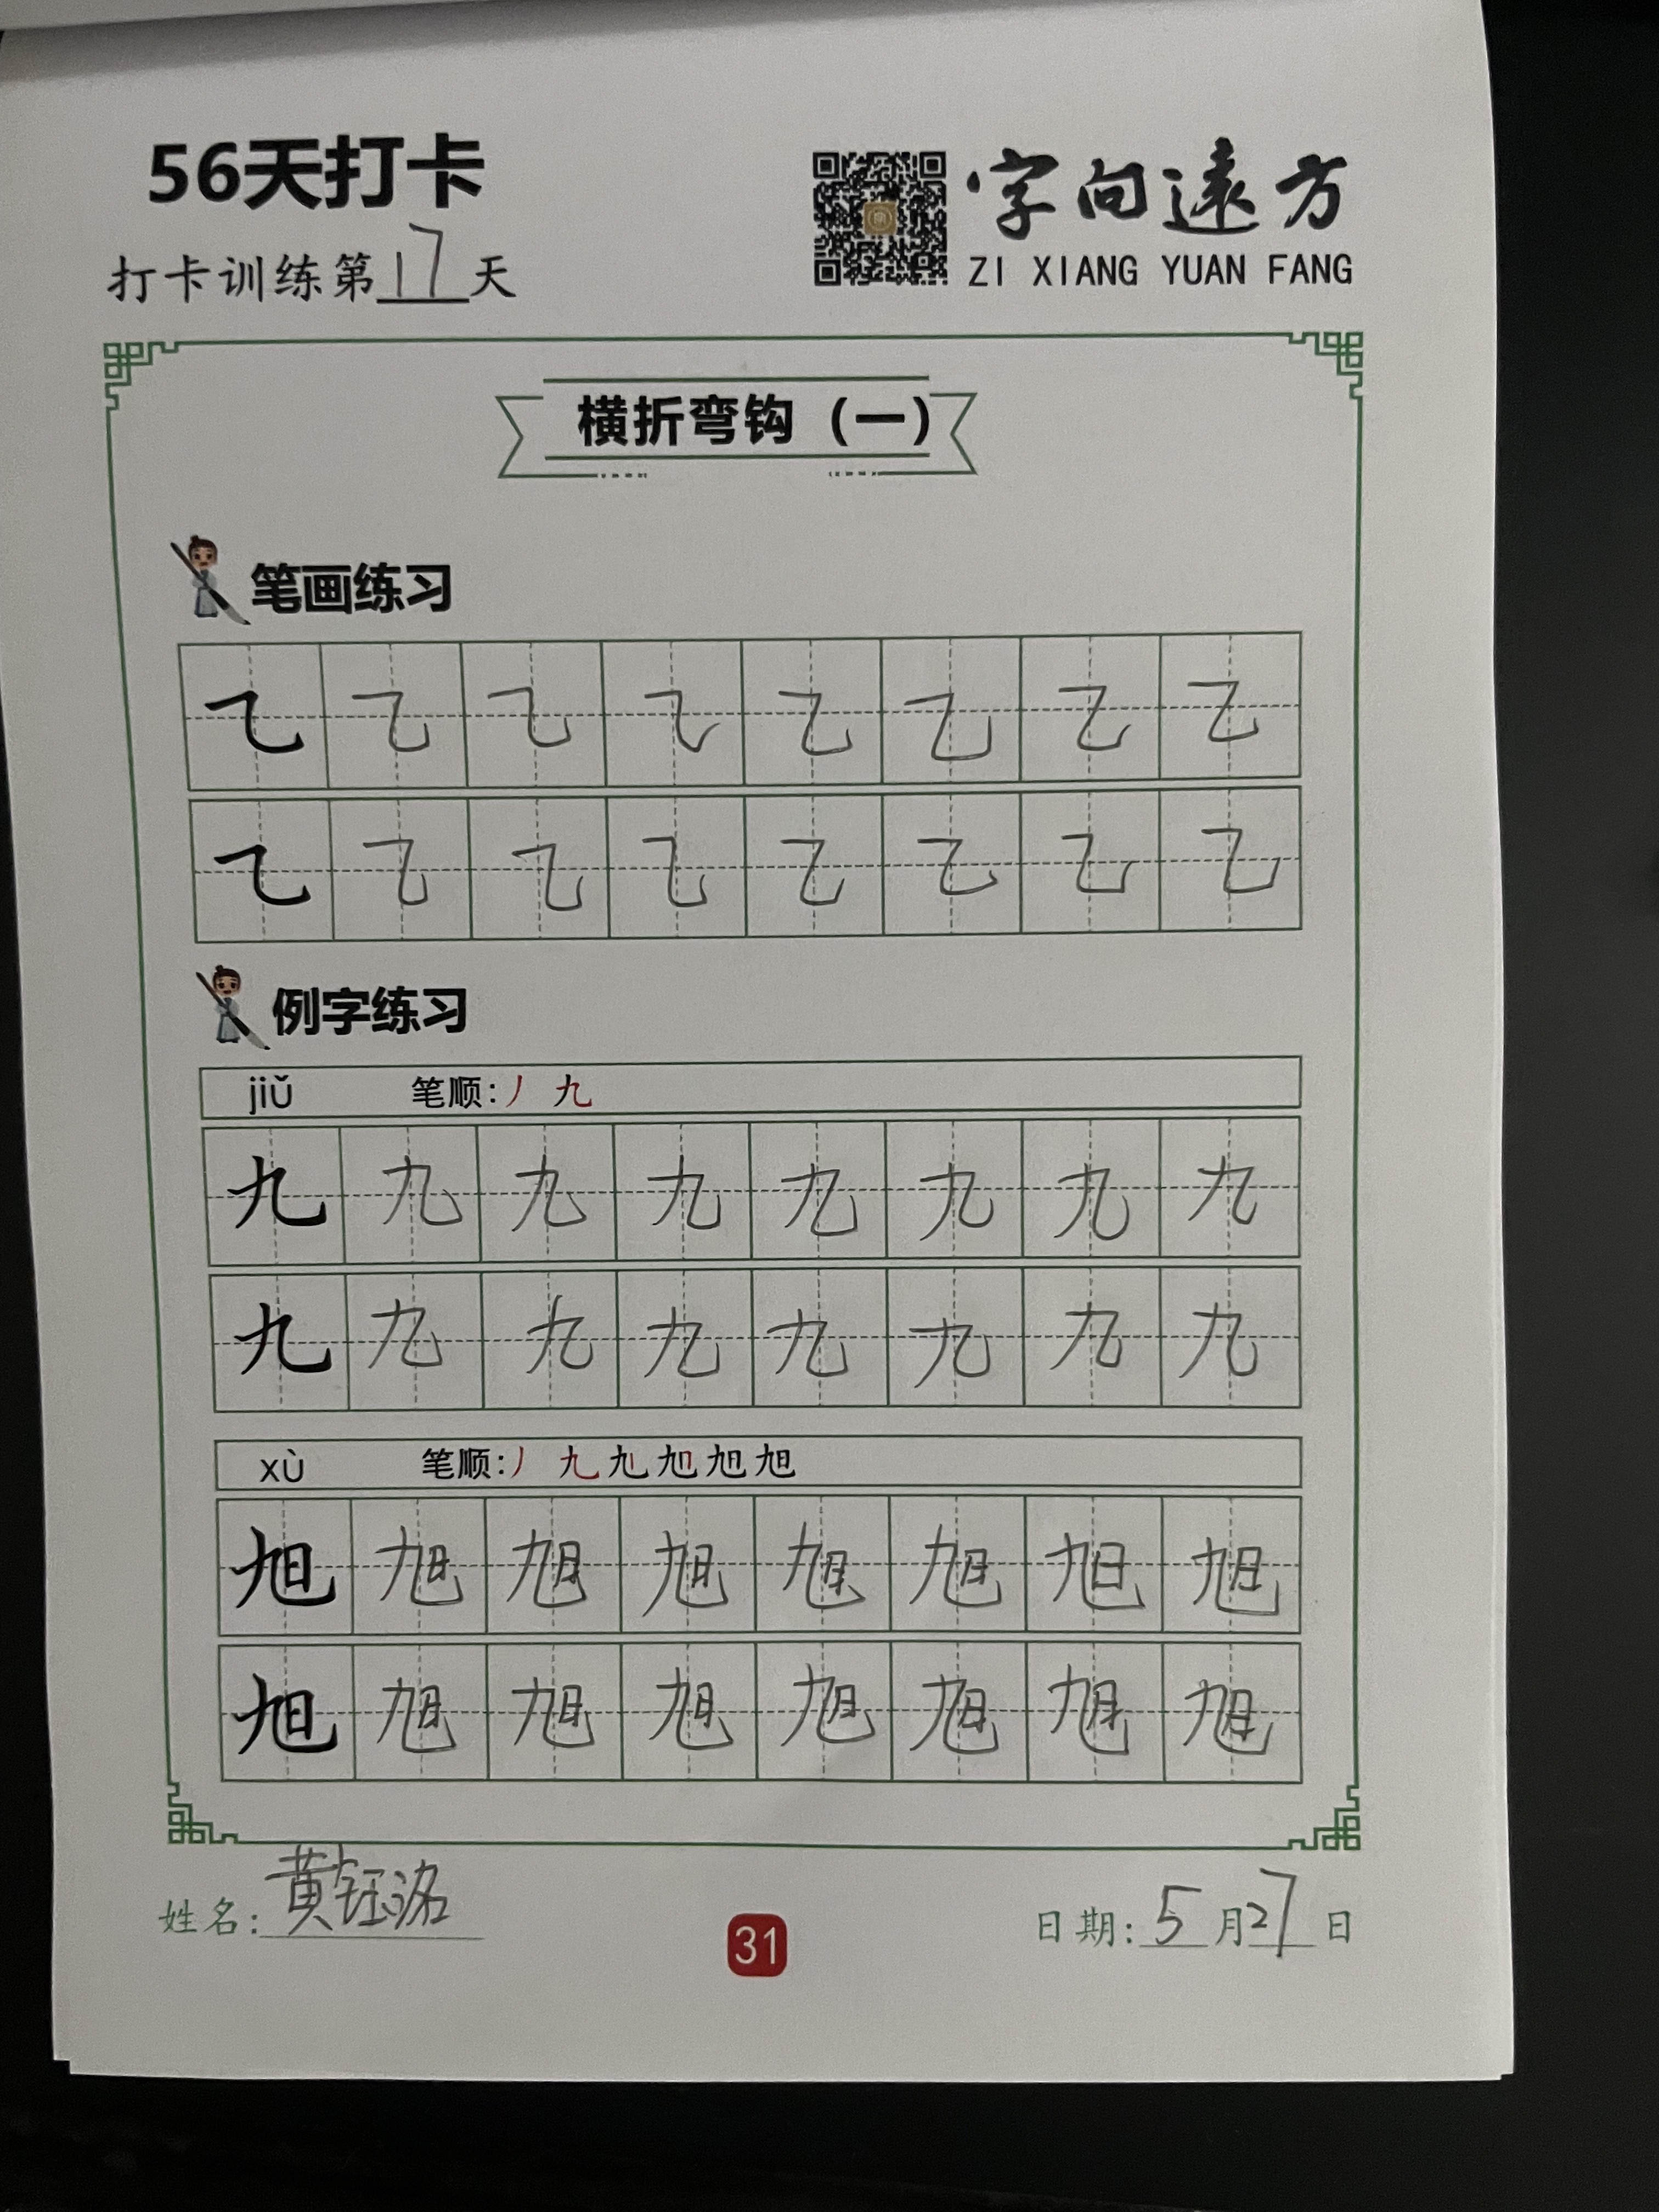 56天打卡
字向遠方
打卡训练第17天
ZI XIANG YUAN FANG
横折弯钩（一）
笔画练习
乙 乙 乙 乙 乙 乙 乙 乙
乙 乙 乙 乙 乙 乙 乙 乙
例字练习
jiǔ 笔顺:丿 九
九 九 九 九 九 九 九 九
九 九 九 九 九 九 九 九
xù 笔顺:丿 九 旭 旭 旭 旭
旭 旭 旭 旭 旭 旭 旭 旭
旭 旭 旭 旭 旭 旭 旭 旭
姓名:黄钰洺
31
日期:5月27日